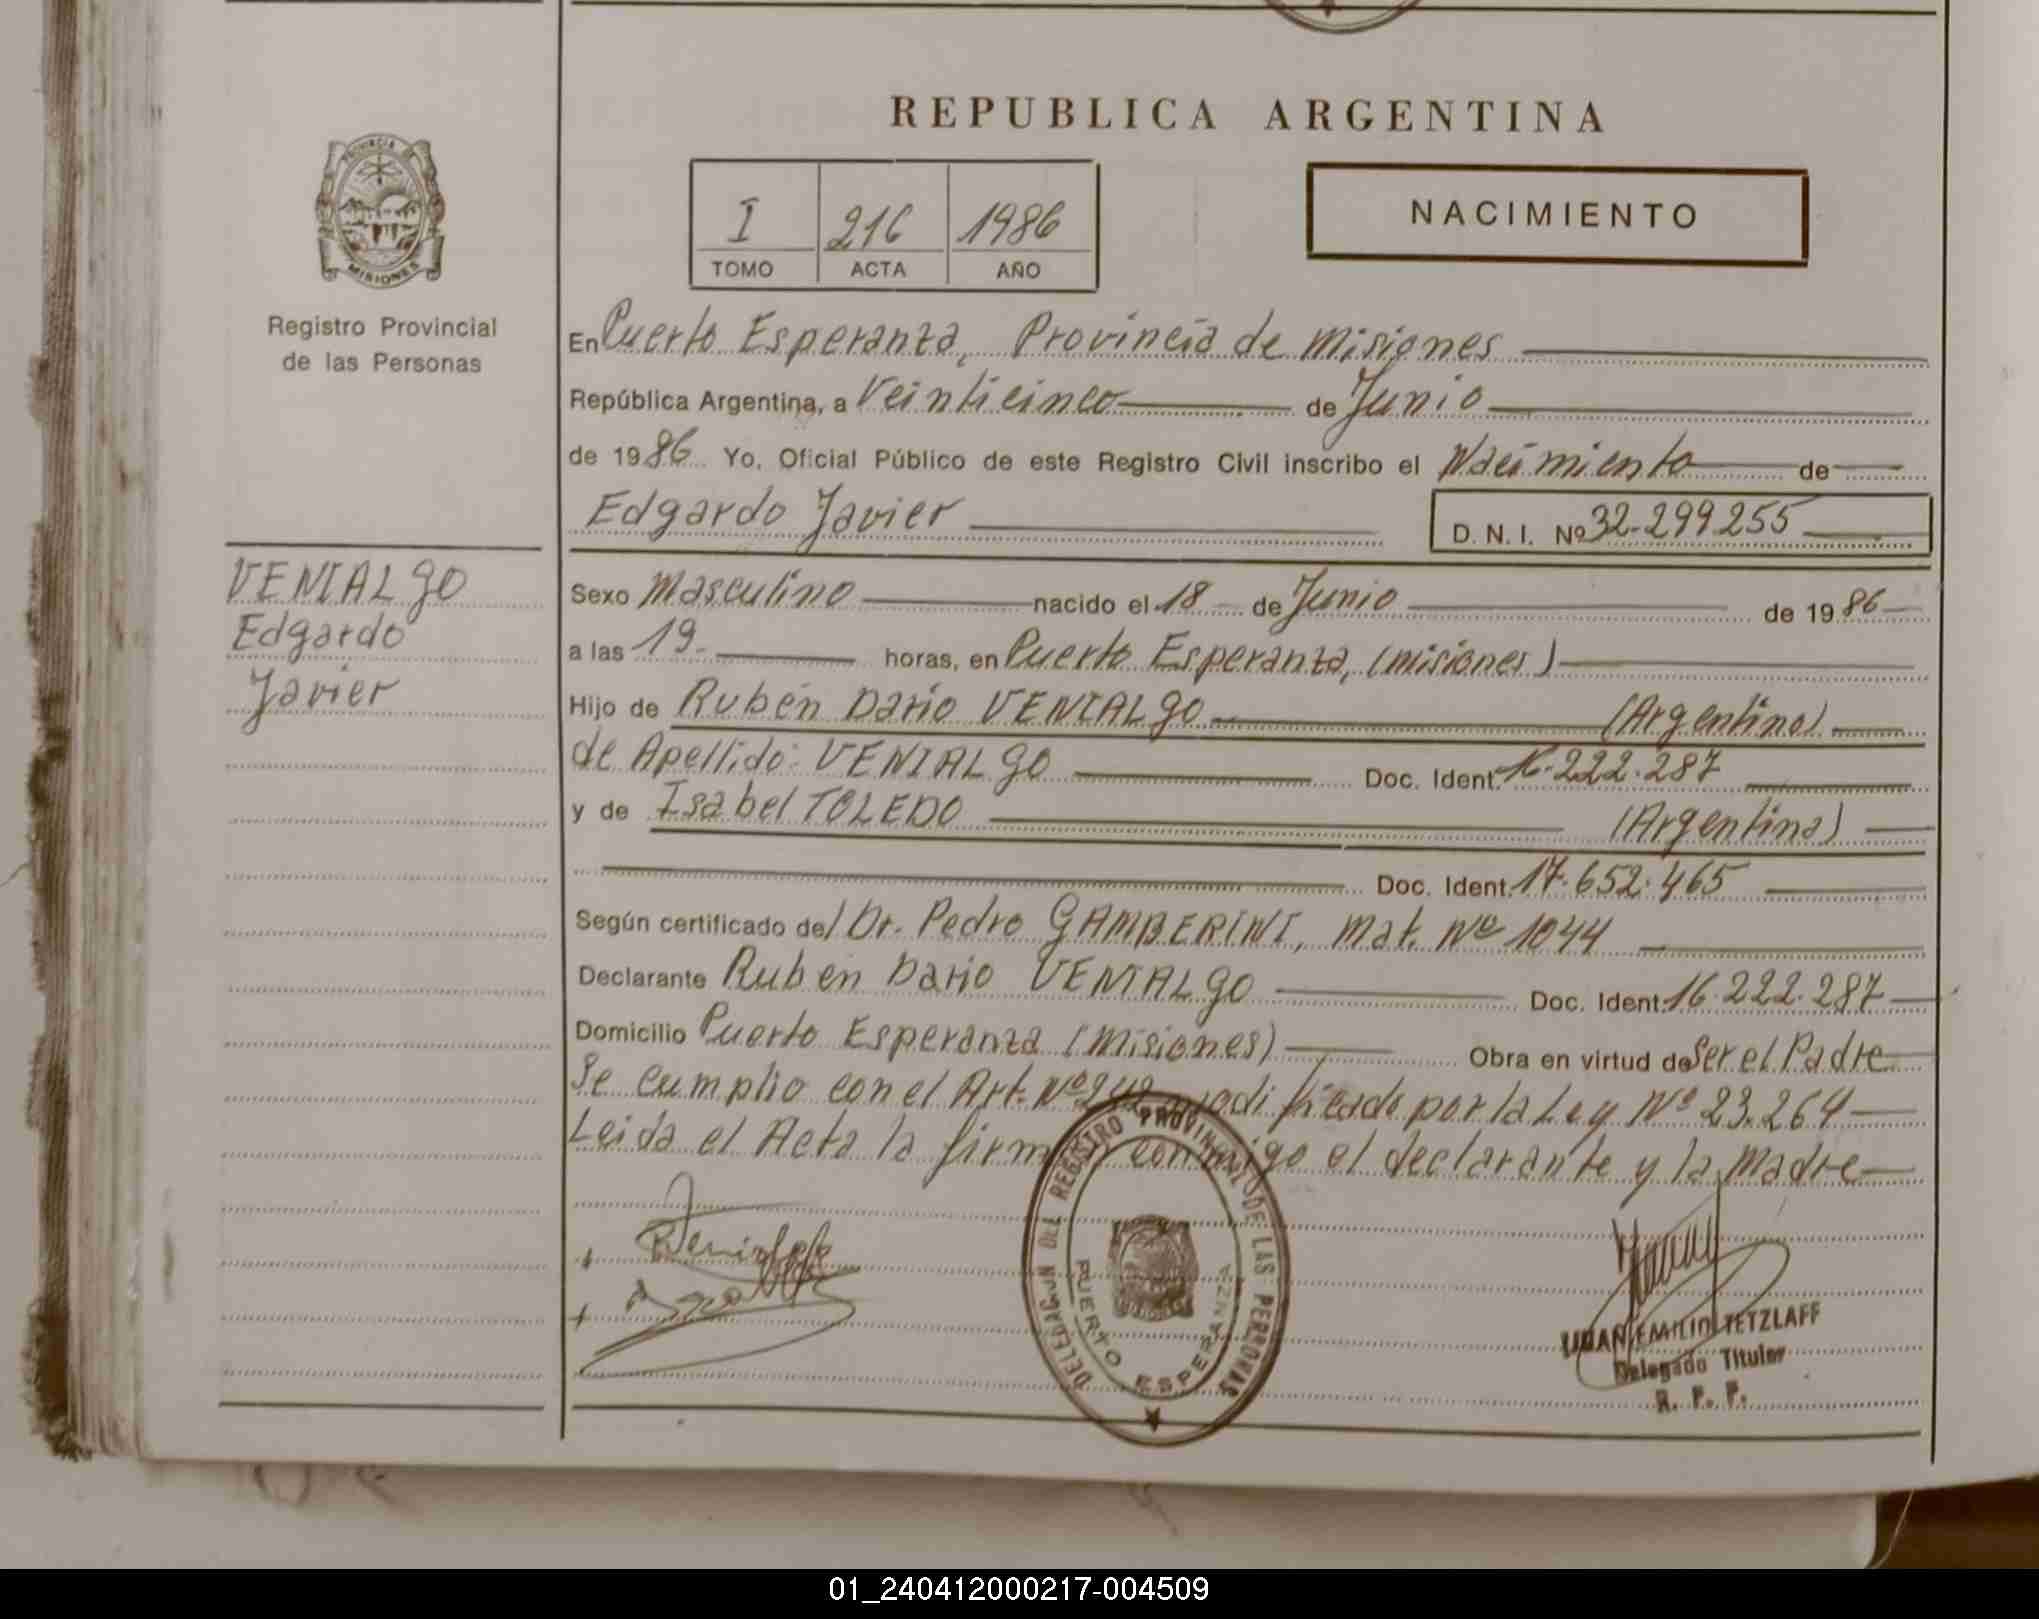 REPUBLICA ARGENTINA
PROVINCIA DE
MISIONES
Registro Provincial
de las Personas
I 216 1986
TOMO ACTA AÑO
NACIMIENTO
En Puerto Esperanza, Provincia de Misiones
República Argentina, a Veinticinco de Junio
de 1986 Yo, Oficial Público de este Registro Civil inscribo el Nacimiento de
Edgardo Javier D. N. I. Nº 32-299255
VENIALGO
Edgardo
Javier
Sexo Masculino nacido el 18 de Junio de 1986
a las 19. horas, en Puerto Esperanza, (Misiones)
Hijo de Rubén Dario VENIALGO (Argentino)
de Apellido: VENIALGO Doc. Ident. 16.222.287
y de Isabel TOLEDO (Argentina)
Doc. Ident. 17.652.465
Según certificado del Dr. Pedro GAMBERINI, Mat. Nº 1044
Declarante Ruben Dario VENIALGO Doc. Ident. 16.222.287
Domicilio Puerto Esperanza (Misiones) Obra en virtud de Ser el Padre
Se cumplio con el Art. Nº 242 modificado por la Ley Nº 23.264
Leida el Acta la firman conmigo el declarante y la Madre
DELEGACION DEL REGISTRO PROVINCIAL DE LAS PERSONAS
PUERTO ESPERANZA
JUAN EMILIO TETZLAFF
Delegado Titular
R. P. P.
01_240412000217-004509